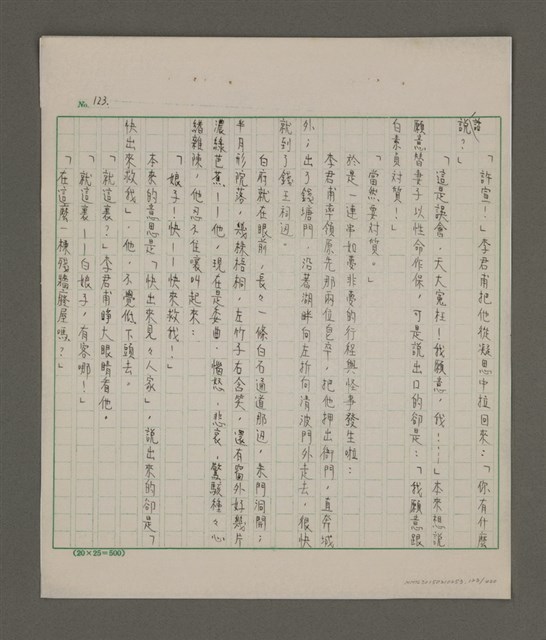 No. 123.
「許宣！」李君甫把他從凝思中拉回來：「你有什麼
話說？」
「這是誤會，天大冤枉！我願意，我！──」本來想說
願意替妻子以性命作保，可是說出口的卻是：「我願意跟
白素貞對質！」
「當然要對質。」
於是一連串如夢非夢的行程與怪事發生啦：
李君甫率領原先那兩位皂卒，把他押出衙門，直奔城
外；出了錢塘門，沿著湖畔向左折向清波門外走去，很快
就到了錢王祠迎。
白府就在眼前，長々一條白石通道那迎，朱門洞開；
半月形院落，幾株梧桐，左竹子右含笑，還有窗外好幾片
濃綠芭蕉──他，現在是委曲、惱怒、悲哀、驚駭種々心
緒雜陳，他忍不住嚷叫起來：
「娘子！快──快來救我！」
本來的意思是「快出來見々人家」，說出來的卻是「
快出來救我」。他，不覺低下頭去。
「就這裏？」李君甫睜大眼睛看他。
「就這裏──白娘子，有客哪！」
「在這麼一棟殘牆廢屋嗎？」
(20×25=500)